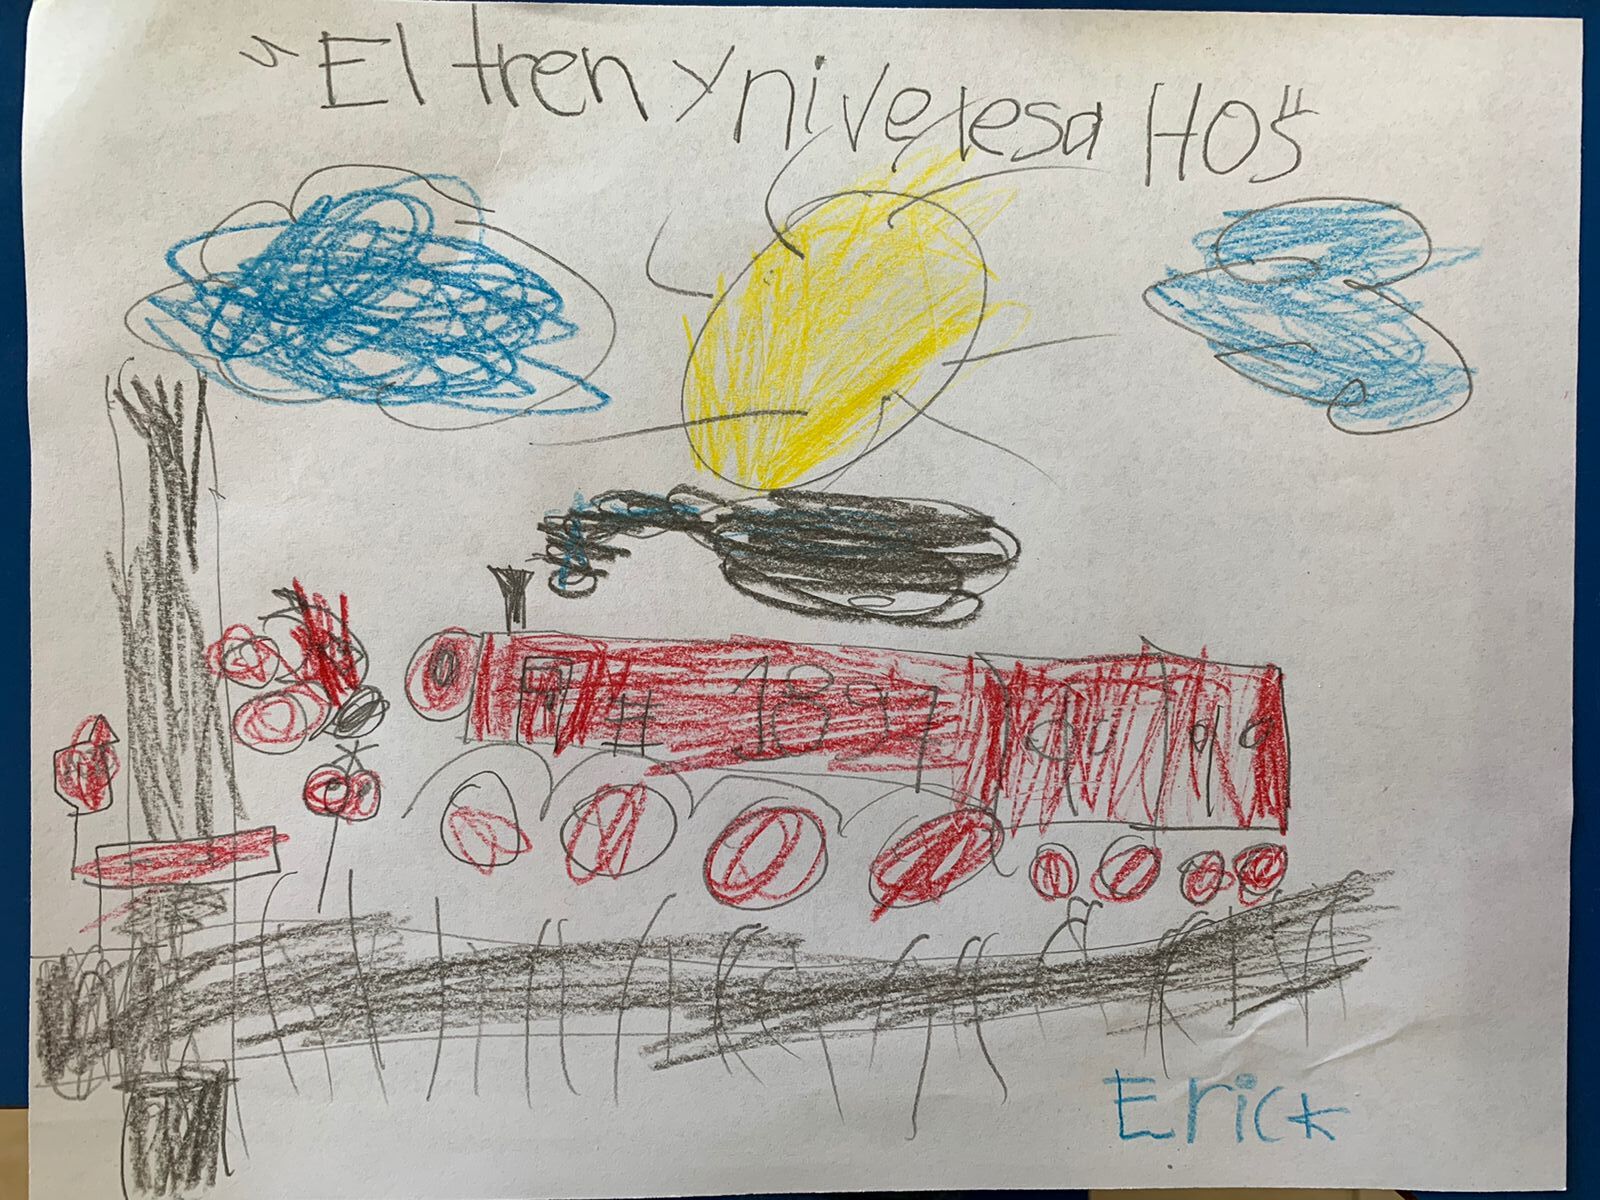 "El tren yniveresa HOS"
# 1897
Erick